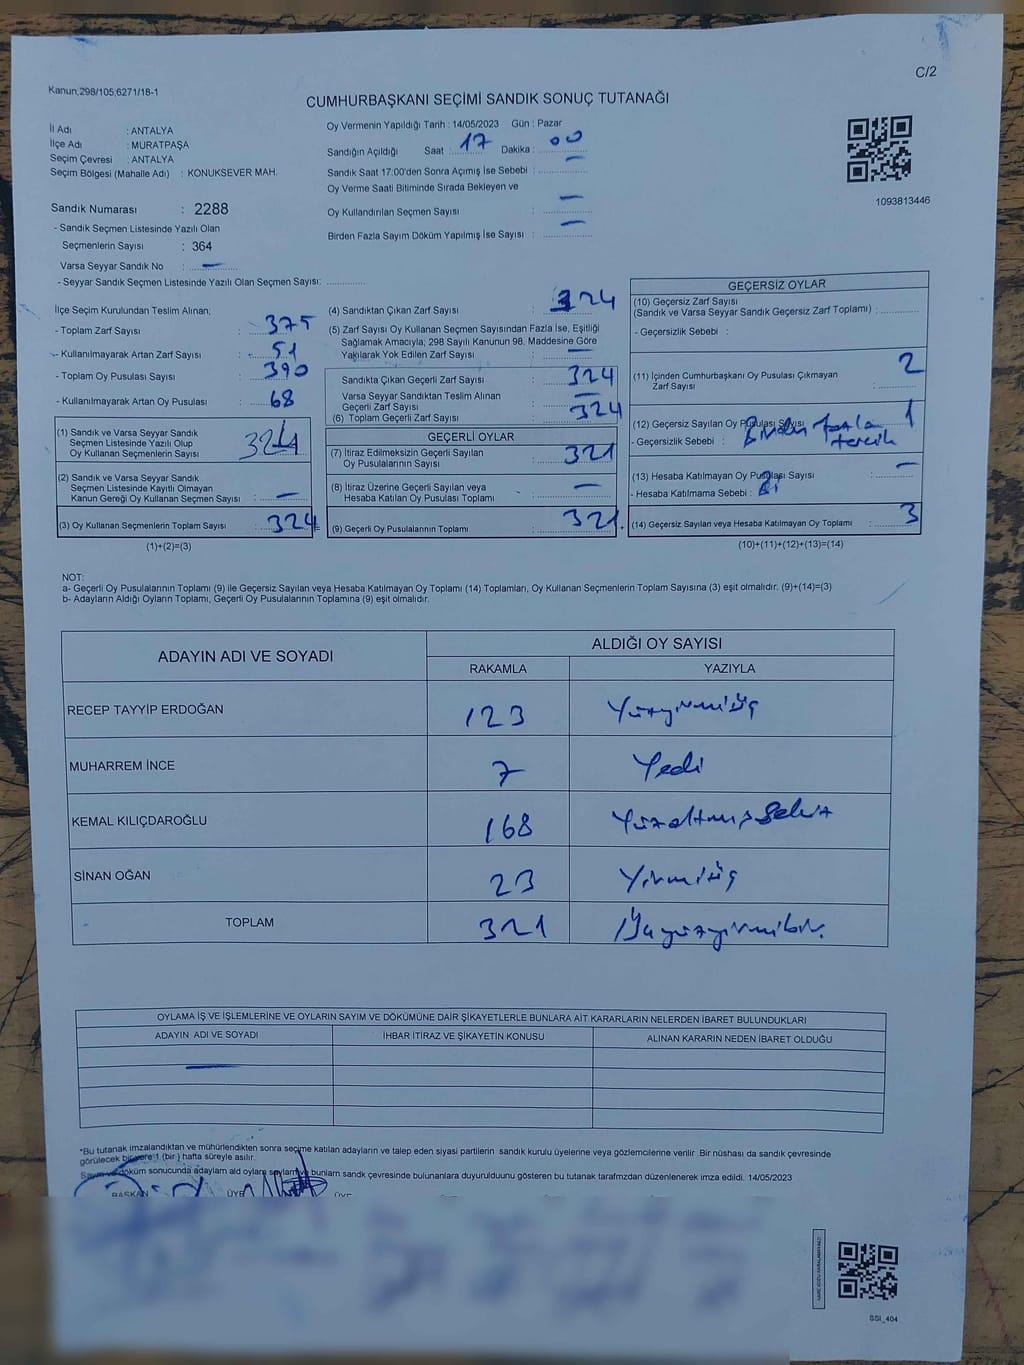 C/2
Kanun;298/105;6271/18-1
CUMHURBAŞKANI SEÇİMİ SANDIK SONUÇ TUTANAĞI
İl Adı : ANTALYA
İlçe Adı : MURATPAŞA
Seçim Çevresi : ANTALYA
Seçim Bölgesi (Mahalle Adı) : KONUKSEVER MAH.
Sandık Numarası : 2288
- Sandık Seçmen Listesinde Yazılı Olan
Seçmenlerin Sayısı : 364
Varsa Seyyar Sandık No : —
- Seyyar Sandık Seçmen Listesinde Yazılı Olan Seçmen Sayısı:
Oy Vermenin Yapıldığı Tarih : 14/05/2023 Gün : Pazar
Sandığın Açıldığı Saat : 17 Dakika : 00
Sandık Saat 17:00'den Sonra Açımış İse Sebebi : —
Oy Verme Saati Bitiminde Sırada Bekleyen ve
Oy Kullandırılan Seçmen Sayısı : —
Birden Fazla Sayım Döküm Yapılmış İse Sayısı : —
1093813446
İlçe Seçim Kurulundan Teslim Alınan;
- Toplam Zarf Sayısı : 375
- Kullanılmayarak Artan Zarf Sayısı : 51
- Toplam Oy Pusulası Sayısı : 390
- Kullanılmayarak Artan Oy Pusulası : 68
(1) Sandık ve Varsa Seyyar Sandık
Seçmen Listesinde Yazılı Olup
Oy Kullanan Seçmenlerin Sayısı : 324
(2) Sandık ve Varsa Seyyar Sandık
Seçmen Listesinde Kayıtlı Olmayan
Kanun Gereği Oy Kullanan Seçmen Sayısı : —
(3) Oy Kullanan Seçmenlerin Toplam Sayısı : 324
(1)+(2)=(3)
(4) Sandıktan Çıkan Zarf Sayısı : 324
(5) Zarf Sayısı Oy Kullanan Seçmen Sayısından Fazla İse, Eşitliği
Sağlamak Amacıyla; 298 Sayılı Kanunun 98. Maddesine Göre
Yakılarak Yok Edilen Zarf Sayısı : —
Sandıkta Çıkan Geçerli Zarf Sayısı : 324
Varsa Seyyar Sandıktan Teslim Alınan
Geçerli Zarf Sayısı : —
(6) Toplam Geçerli Zarf Sayısı : 324
GEÇERLİ OYLAR
(7) İtiraz Edilmeksizin Geçerli Sayılan
Oy Pusulalarının Sayısı : 321
(8) İtiraz Üzerine Geçerli Sayılan veya
Hesaba Katılan Oy Pusulası Toplamı : —
(9) Geçerli Oy Pusulalarının Toplamı : 321
GEÇERSİZ OYLAR
(10) Geçersiz Zarf Sayısı
(Sandık ve Varsa Seyyar Sandık Geçersiz Zarf Toplamı) :
- Geçersizlik Sebebi :
(11) İçinden Cumhurbaşkanı Oy Pusulası Çıkmayan
Zarf Sayısı : 2
(12) Geçersiz Sayılan Oy Pusulası Sayısı 1
- Geçersizlik Sebebi : Birden fazla
tercih
(13) Hesaba Katılmayan Oy Pusulası Sayısı : —
- Hesaba Katılmama Sebebi :
(14) Geçersiz Sayılan veya Hesaba Katılmayan Oy Toplamı : 3
(10)+(11)+(12)+(13)=(14)
NOT:
a- Geçerli Oy Pusulalarının Toplamı (9) ile Geçersiz Sayılan veya Hesaba Katılmayan Oy Toplamı (14) Toplamları, Oy Kullanan Seçmenlerin Toplam Sayısına (3) eşit olmalıdır. (9)+(14)=(3)
b- Adayların Aldığı Oyların Toplamı, Geçerli Oy Pusulalarının Toplamına (9) eşit olmalıdır.
ADAYIN ADI VE SOYADI ALDIĞI OY SAYISI
RAKAMLA YAZIYLA
RECEP TAYYİP ERDOĞAN 123 Yüzyirmiüç
MUHARREM İNCE 7 Yedi
KEMAL KILIÇDAROĞLU 168 Yüzaltmışsekiz
SİNAN OĞAN 23 Yirmiüç
TOPLAM 321 Üçyüzyirmibir.
OYLAMA İŞ VE İŞLEMLERİNE VE OYLARIN SAYIM VE DÖKÜMÜNE DAİR ŞİKAYETLERLE BUNLARA AİT KARARLARIN NELERDEN İBARET BULUNDUKLARI
ADAYIN ADI VE SOYADI İHBAR İTİRAZ VE ŞİKAYETİN KONUSU ALINAN KARARIN NEDEN İBARET OLDUĞU
*Bu tutanak imzalandıktan ve mühürlendikten sonra seçime katılan adayların ve talep eden siyasi partilerin sandık kurulu üyelerine veya gözlemcilerine verilir .Bir nüshası da sandık çevresinde
görülecek bir yere 1 (bir) hafta süreyle asılır.
Sayım ve döküm sonucunda adayları ald oyları bunların sandık çevresinde bulunanlara duyurulduunu gösteren bu tutanak tarafmzdan düzenlenerek imza edildi. 14/05/2023
BAŞKAN ÜYE ÜYE
SSI_404